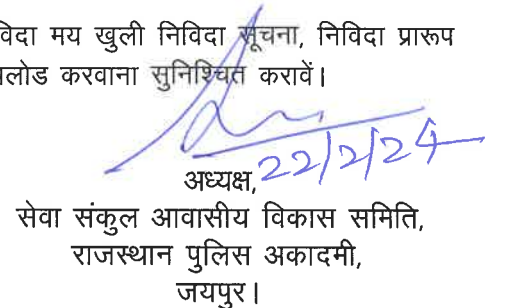 विदा मय खुली निविदा सूचना, निविदा प्रारूप
लोड करवाना सुनिश्चित करावें।
22/2/24
अध्यक्ष,
सेवा संकुल आवासीय विकास समिति,
राजस्थान पुलिस अकादमी,
जयपुर।